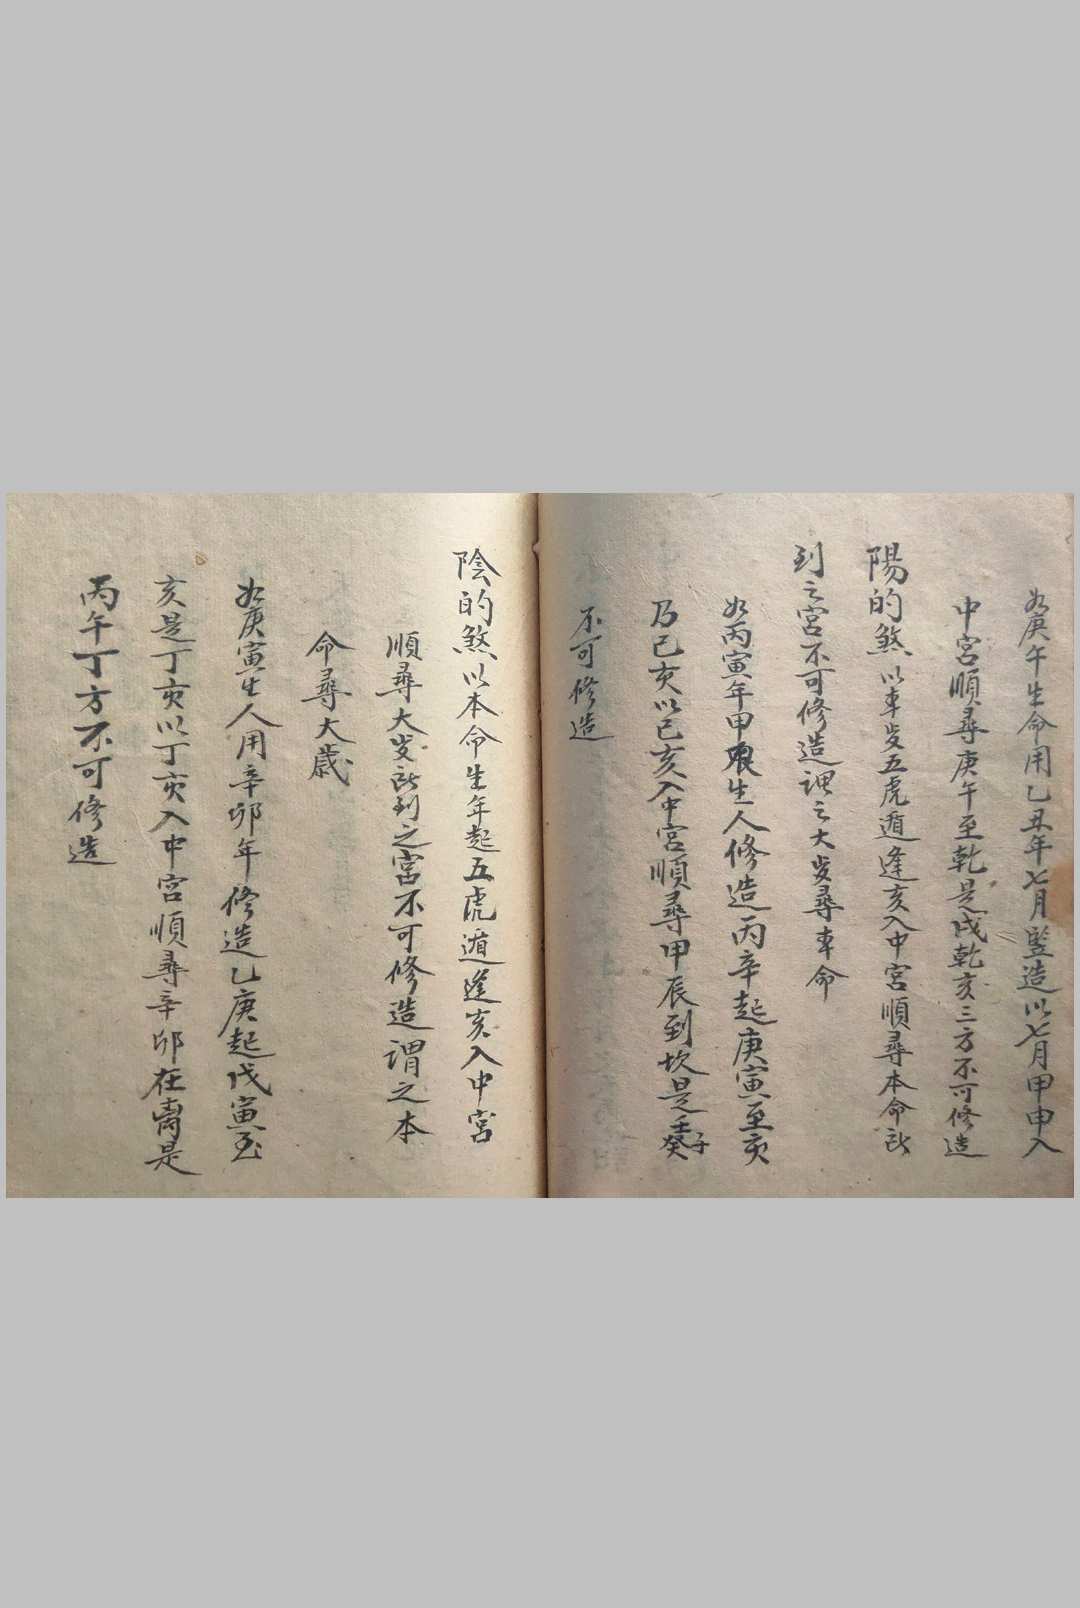 如庚午生命用乙丑年七月監造以七月甲申入
中宮順尋庚午至乾是戌乾亥三方不可修造
陽的煞以車歲五虎遁逢亥入中宮順尋本命所
到之宮不可修造謂之大歲尋本命
如丙寅年甲辰生人修造丙辛起庚寅至亥
乃己亥以己亥入中宮順尋甲辰到坎是壬子癸
不可修造
陰的煞以本命生年起五虎遁逢亥入中宮
順尋大歲所到之宮不可修造謂之本
命尋大歲
如庚寅生人用辛卯年修造乙庚起戊寅至
亥是丁亥以丁亥入中宮順尋辛卯在离是
丙午丁方不可修造